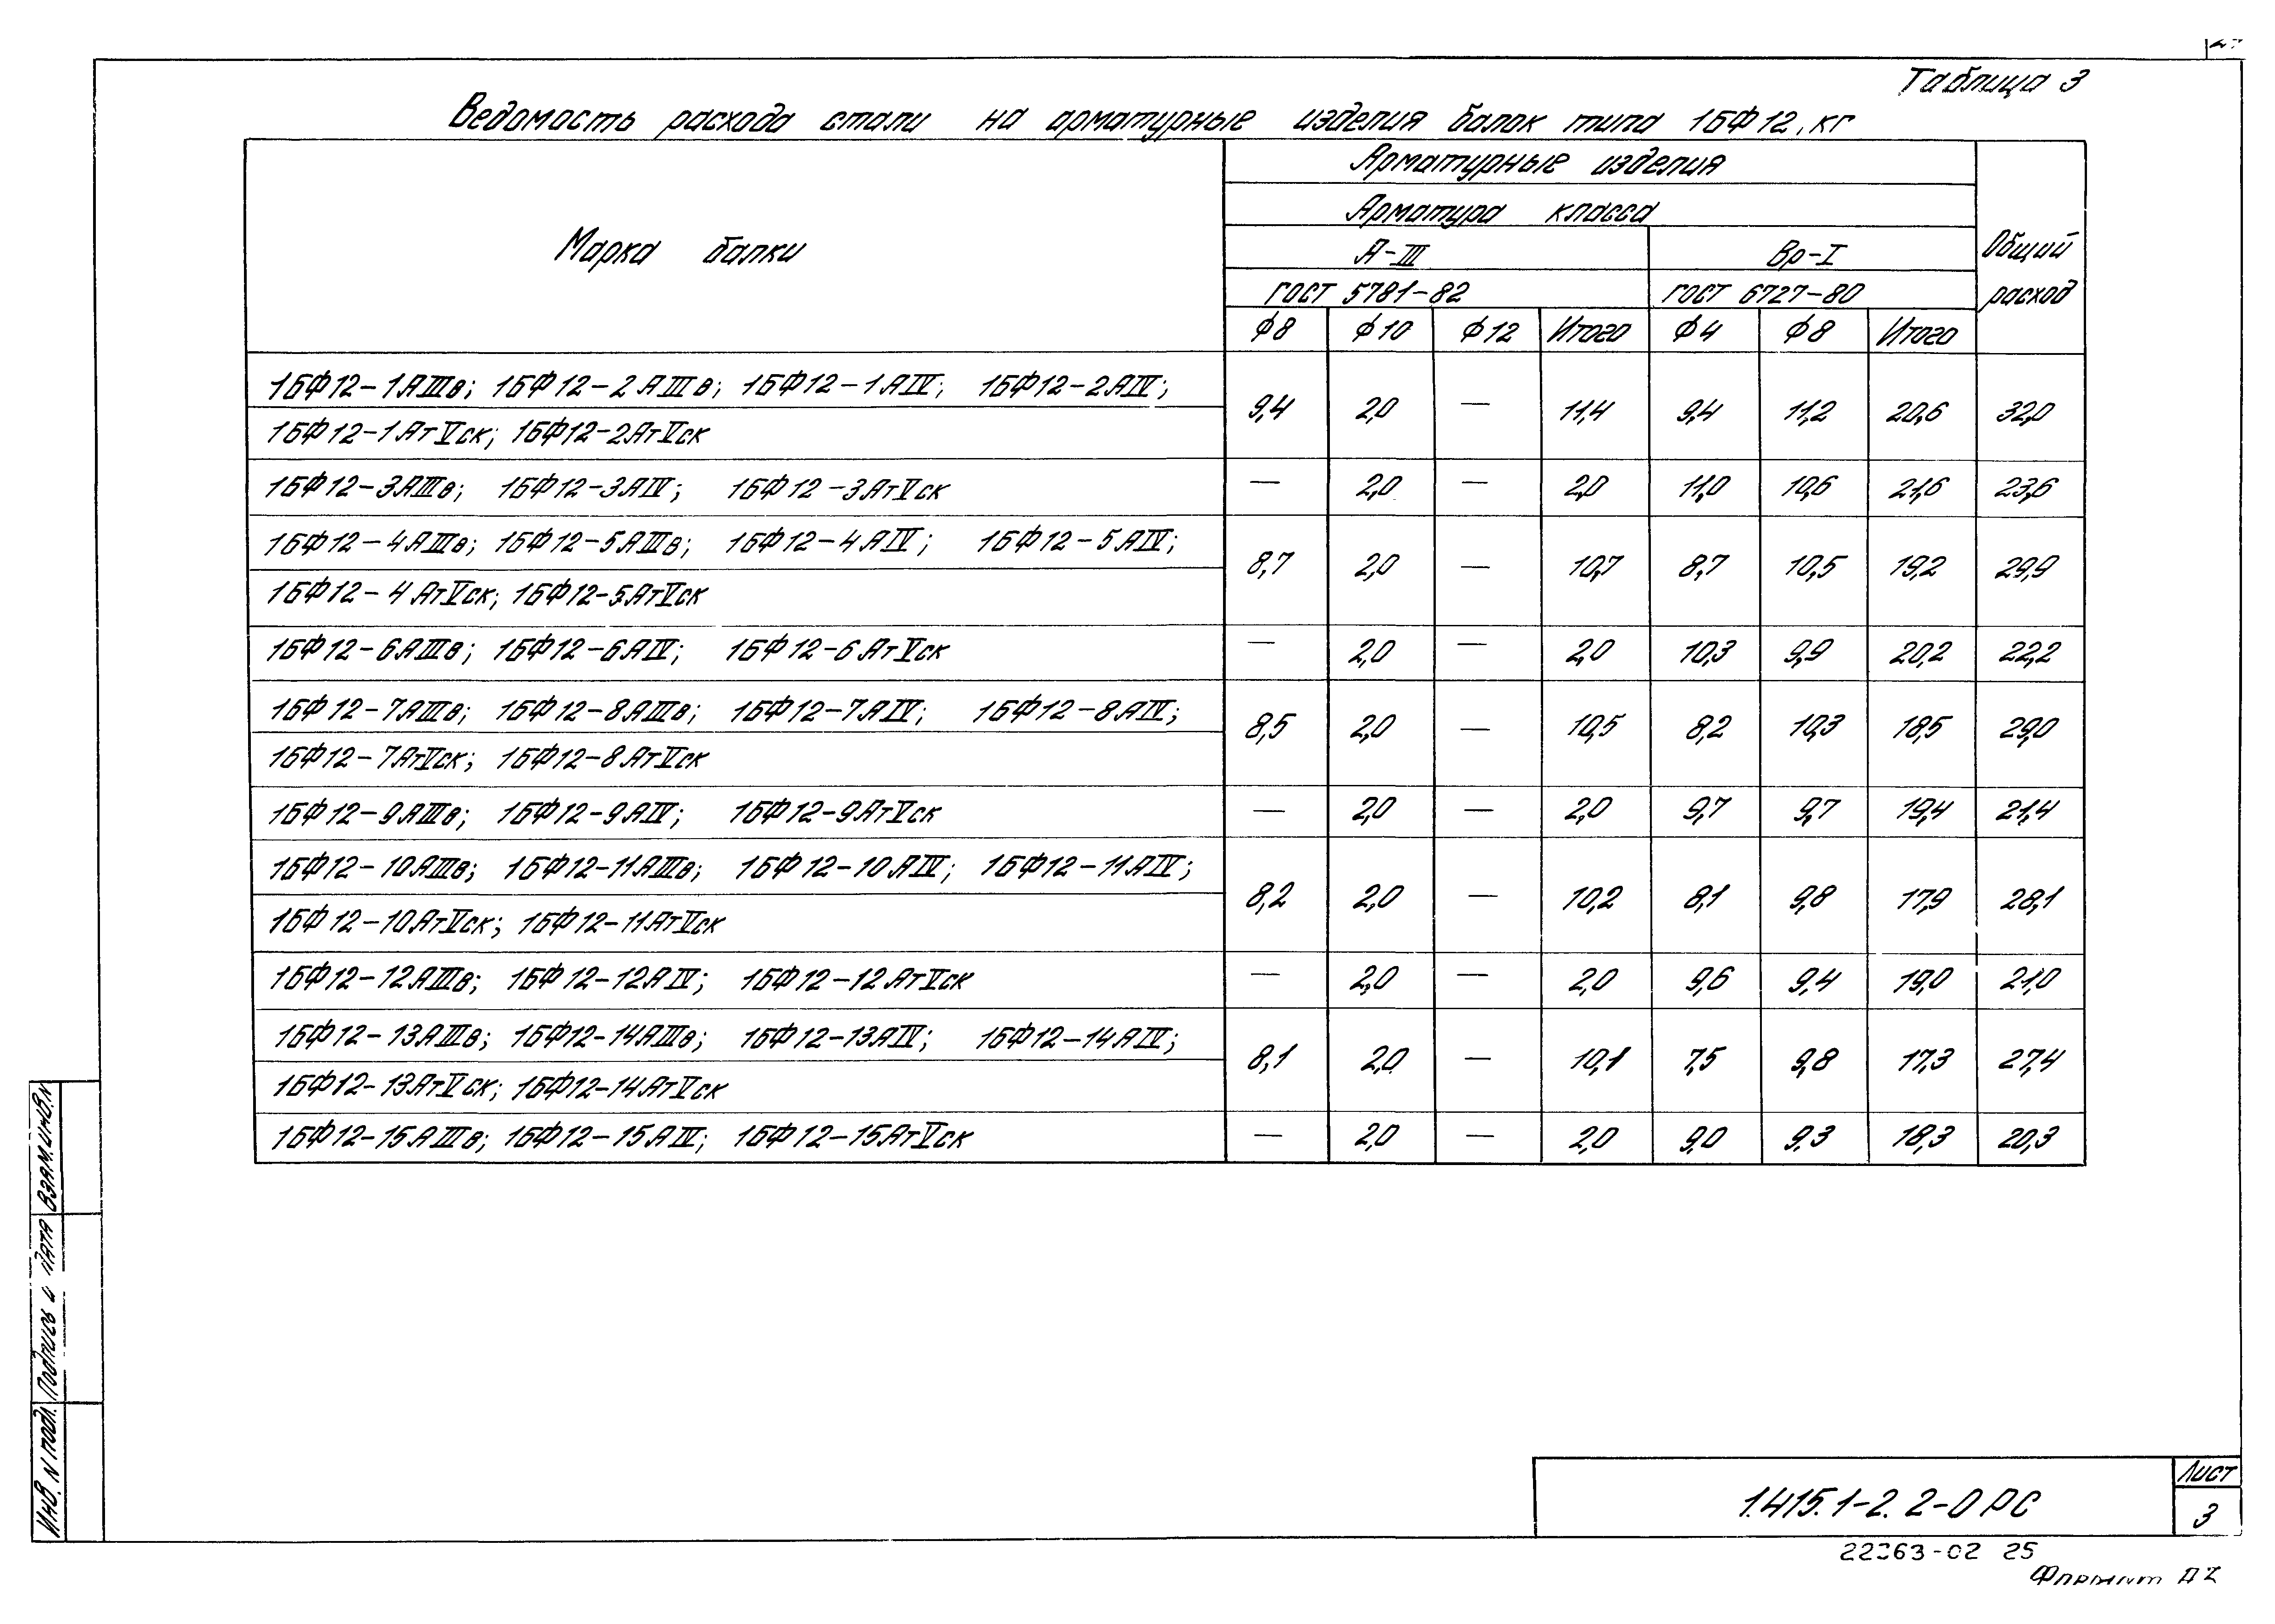 Таблица 3
Ведомость расхода стали на арматурные изделия балок типа 1БФ12, кг
Марка балки
Арматурные изделия
Общий расход
Арматура класса
А-III Вр-I
ГОСТ 5781-82 ГОСТ 6727-80
Ф8 Ф10 Ф12 Итого Ф4 Ф8 Итого
1БФ12-1АIIIв; 1БФ12-2АIIIв; 1БФ12-1АIV; 1БФ12-2АIV;
1БФ12-1АтVск; 1БФ12-2АтVск
9,4 2,0 — 11,4 9,4 11,2 20,6 32,0
1БФ12-3АIIIв; 1БФ12-3АIV; 1БФ12-3АтVск — 2,0 — 2,0 11,0 10,6 21,6 23,6
1БФ12-4АIIIв; 1БФ12-5АIIIв; 1БФ12-4АIV; 1БФ12-5АIV;
1БФ12-4АтVск; 1БФ12-5АтVск
8,7 2,0 — 10,7 8,7 10,5 19,2 29,9
1БФ12-6АIIIв; 1БФ12-6АIV; 1БФ12-6АтVск — 2,0 — 2,0 10,3 9,9 20,2 22,2
1БФ12-7АIIIв; 1БФ12-8АIIIв; 1БФ12-7АIV; 1БФ12-8АIV;
1БФ12-7АтVск; 1БФ12-8АтVск
8,5 2,0 — 10,5 8,2 10,3 18,5 29,0
1БФ12-9АIIIв; 1БФ12-9АIV; 1БФ12-9АтVск — 2,0 — 2,0 9,7 9,7 19,4 21,4
1БФ12-10АIIIв; 1БФ12-11АIIIв; 1БФ12-10АIV; 1БФ12-11АIV;
1БФ12-10АтVск; 1БФ12-11АтVск
8,2 2,0 — 10,2 8,1 9,8 17,9 28,1
1БФ12-12АIIIв; 1БФ12-12АIV; 1БФ12-12АтVск — 2,0 — 2,0 9,6 9,4 19,0 21,0
1БФ12-13АIIIв; 1БФ12-14АIIIв; 1БФ12-13АIV; 1БФ12-14АIV;
1БФ12-13АтVск; 1БФ12-14АтVск
8,1 2,0 — 10,1 7,5 9,8 17,3 27,4
1БФ12-15АIIIв; 1БФ12-15АIV; 1БФ12-15АтVск — 2,0 — 2,0 9,0 9,3 18,3 20,3
Взам.инв.N
Подпись и дата
Инв.N подл.
1.415.1-2.2-0 РС
Лист
3
22363-02 25
Формат